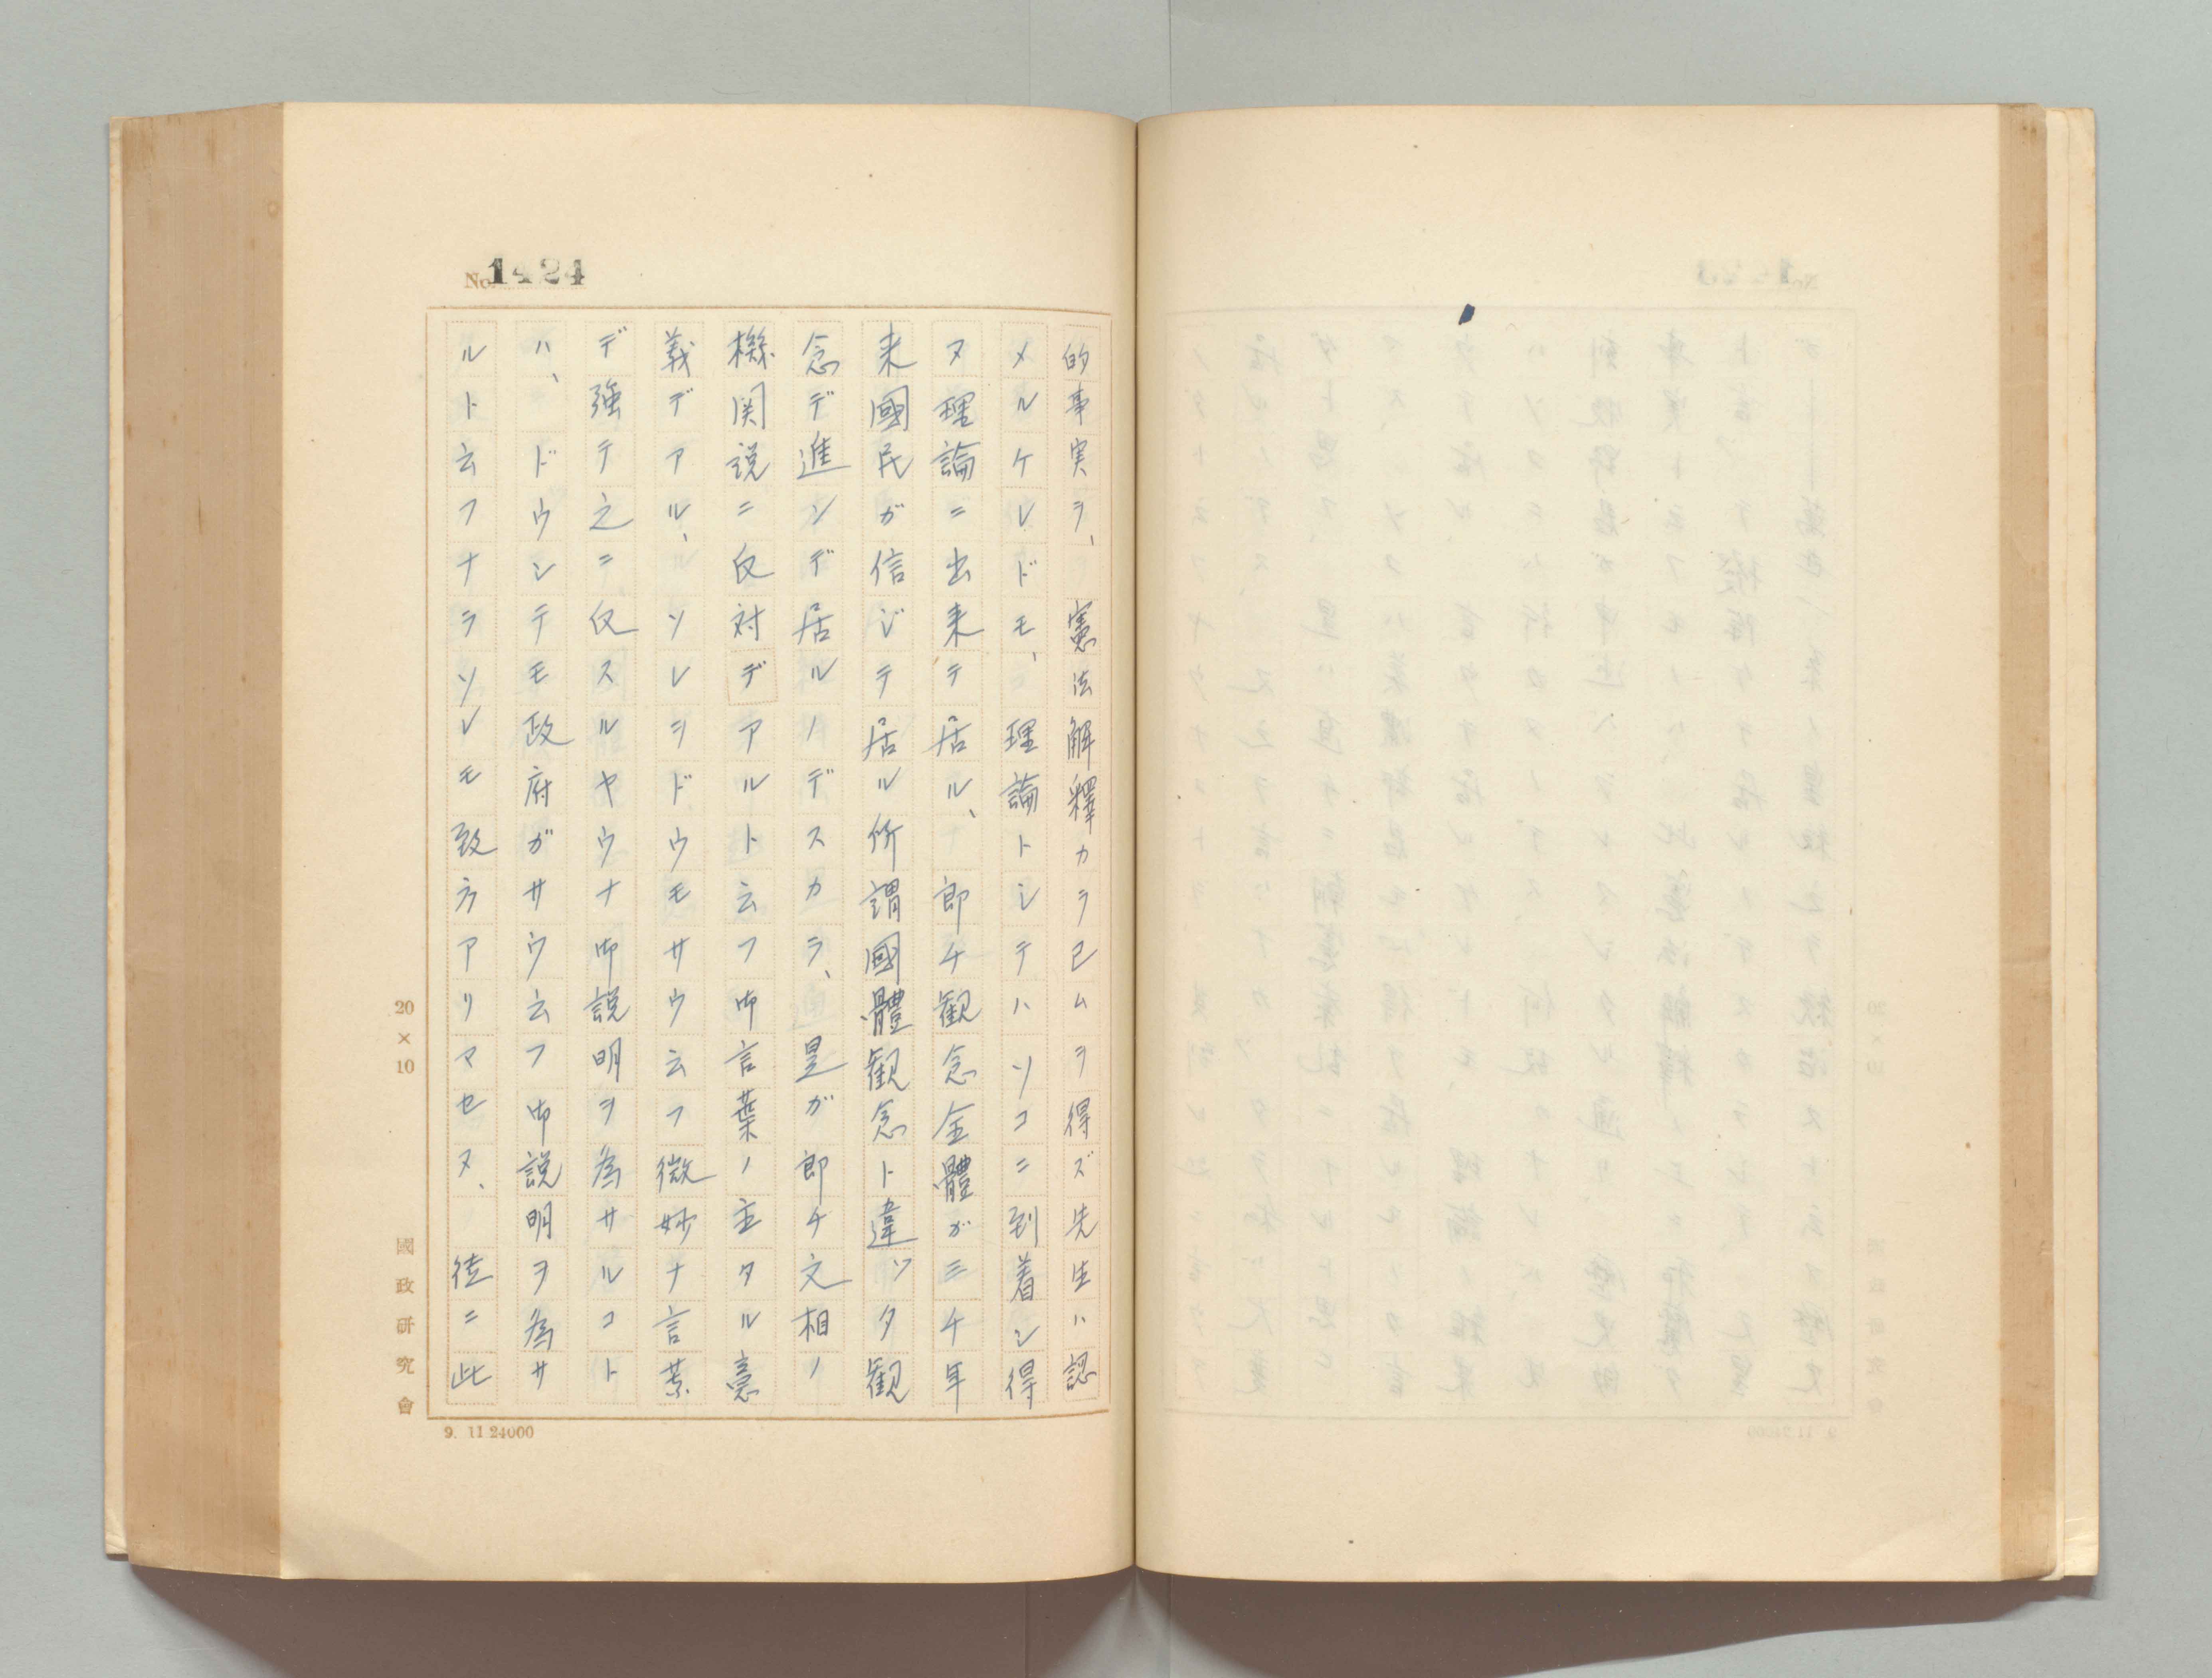 No. 1424
的事実ヲ、憲法解釋カラ已ムヲ得ズ先生ハ認
メルケレドモ、理論トシテハソコニ到着シ得
ヌ理論ニ出来テ居ル、即チ観念全體ガ三千年
来國民ガ信ジテ居ル所謂國體観念ト違ツタ観
念デ進ンデ居ルノデスカラ、是ガ即チ文相ノ
機関説ニ反対デアルト云フ御言葉ノ主タル意
義デアル、ソレヲドウモサウ云フ微妙ナ言葉
デ強テ之ニ反スルヤウナ御説明ヲ為サルコト
ハ、ドウシテモ政府ガサウ云フ御説明ヲ為サ
ルト云フナラソレモ致方アリマセヌ、徒ニ此
20×10
國政研究會
9. 11 24000